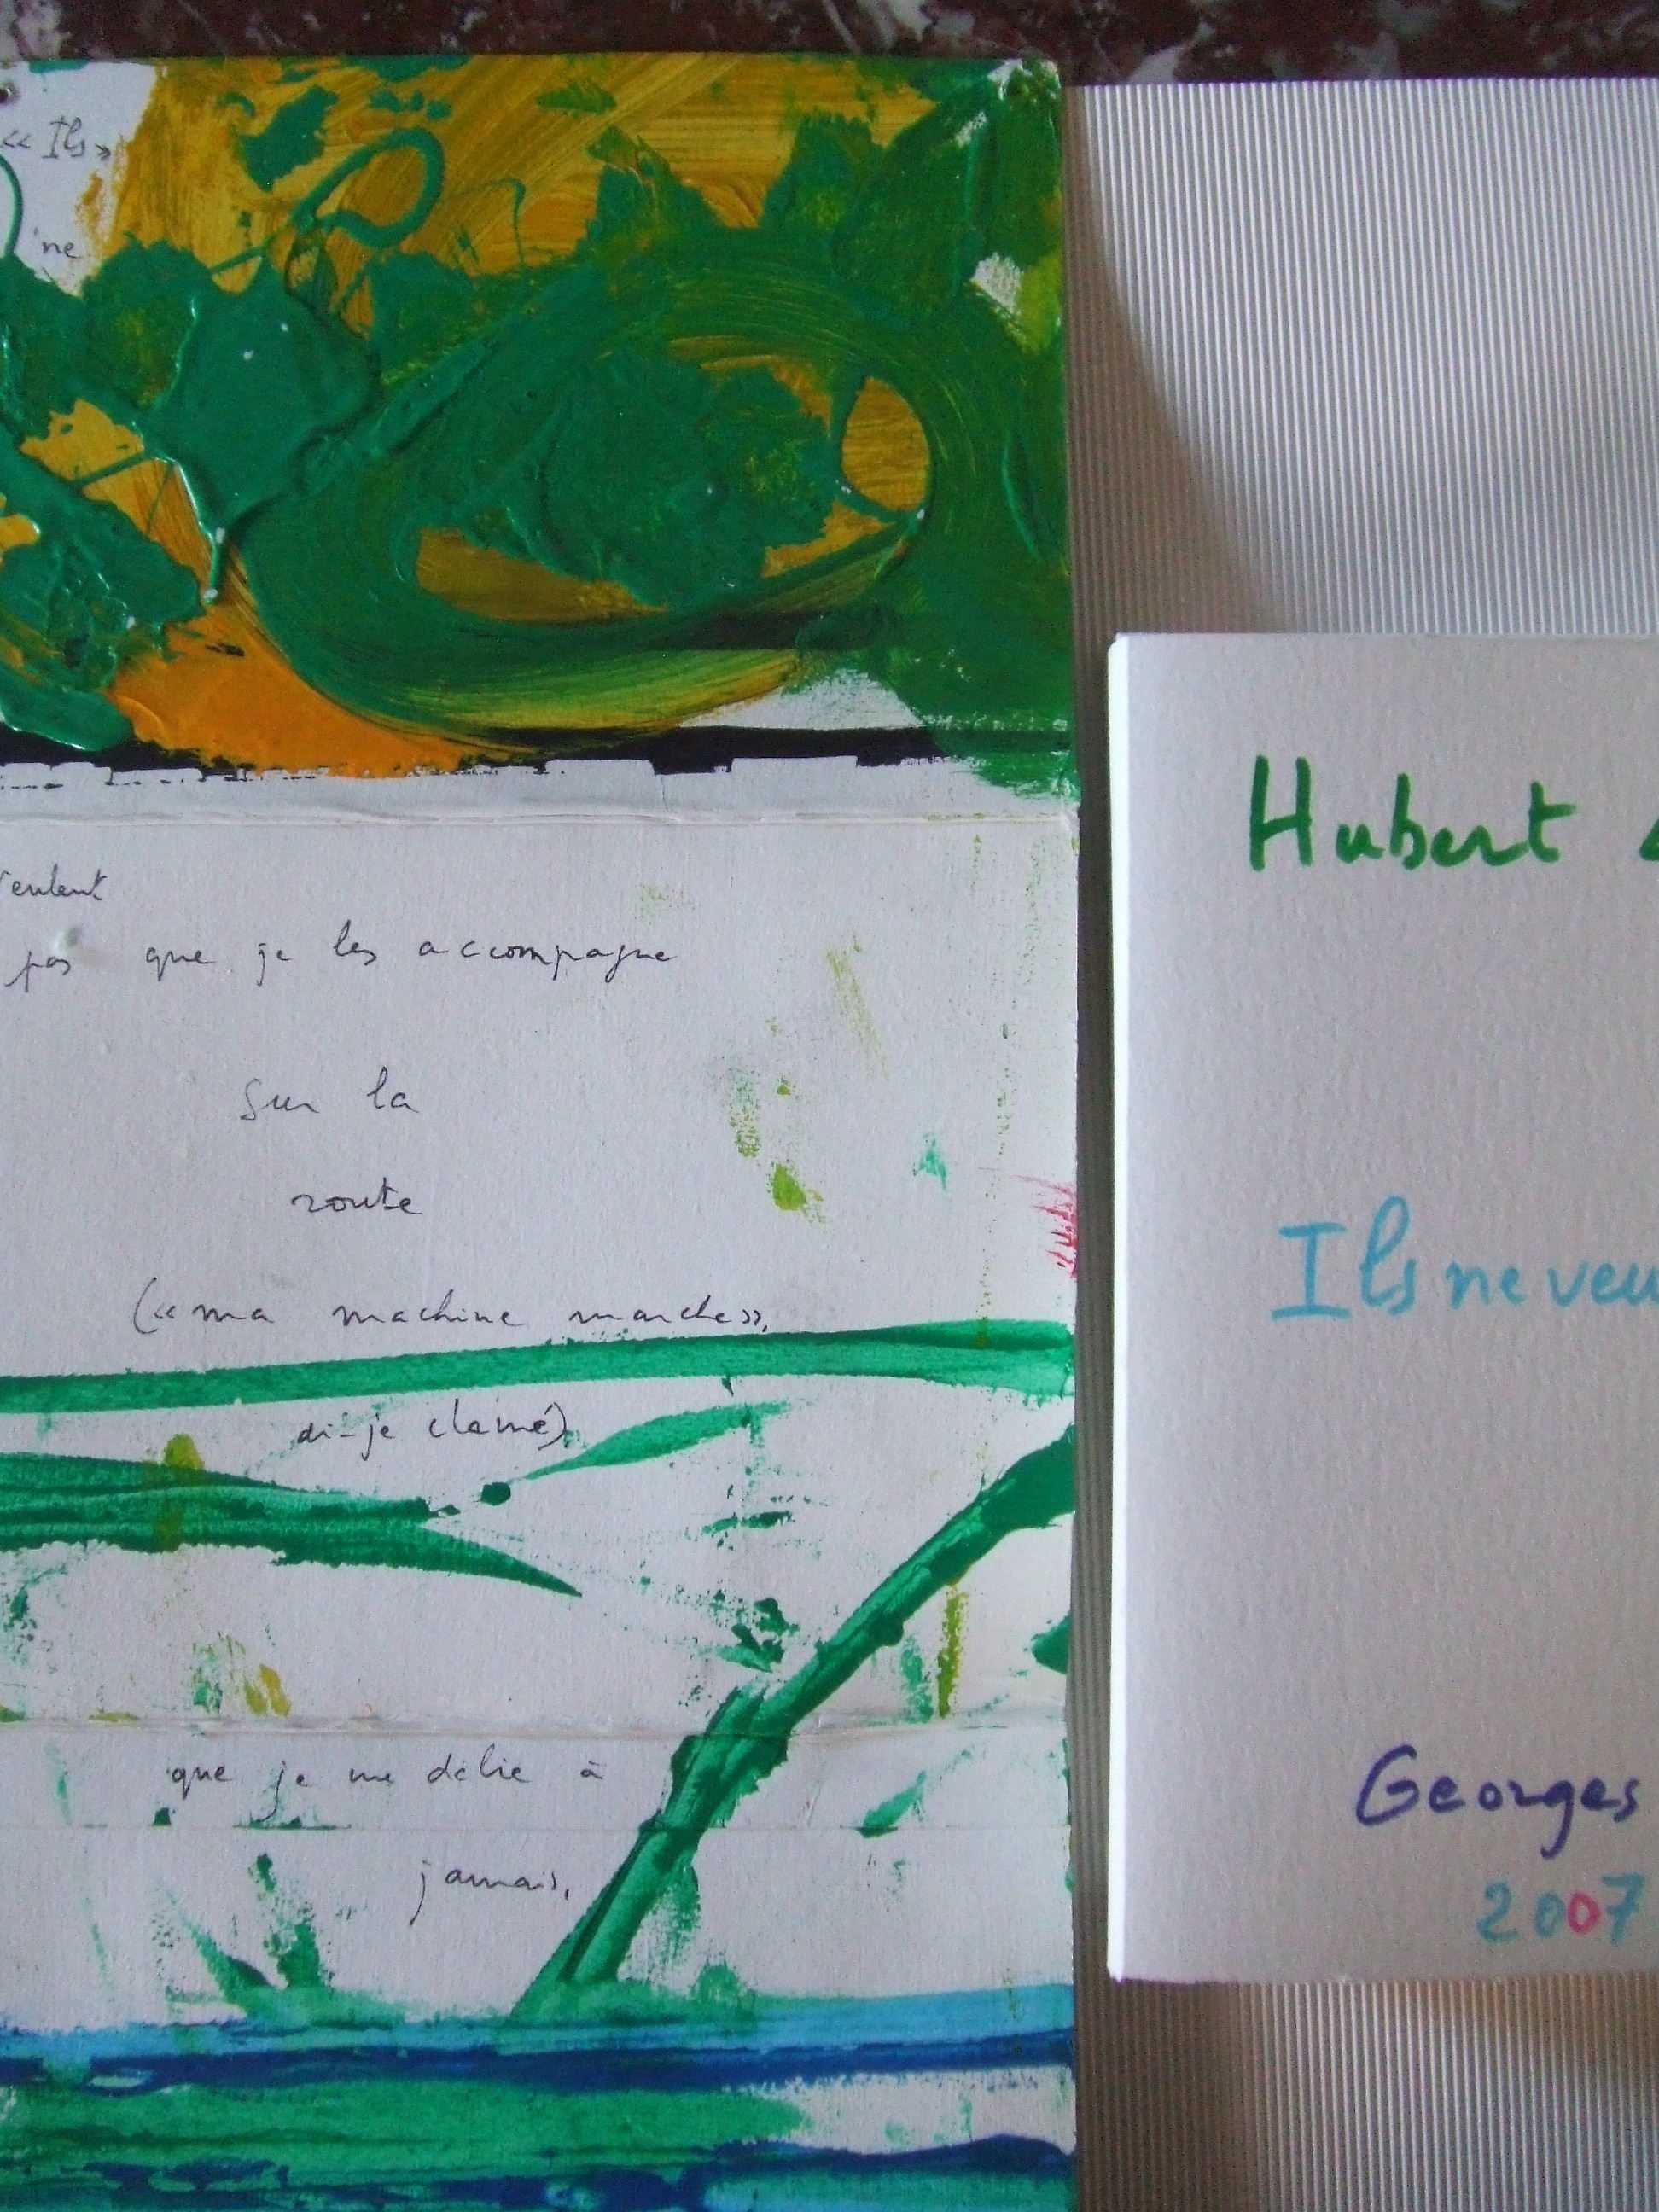 « Ils »
ne
veulent
pas que je les accompagne
sur la
route
(« ma machine marche »,
ai-je clamé)
que je me délie à
jamais,
Hubert
Ils ne veu
Georges
2007